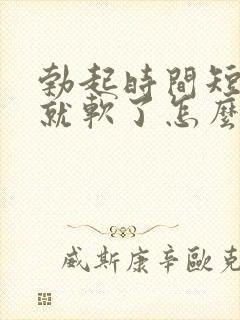 勃起時間短
就軟了怎麼
威斯康辛歐克